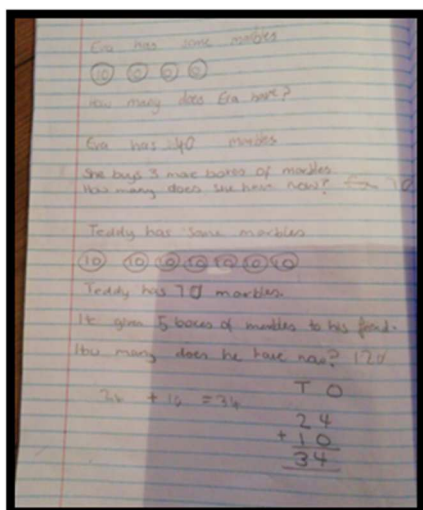 Eva has some marbles
10 10 10 10
How many does Eva have?
Eva has 40 marbles
She buys 3 more boxes of marbles.
How many does she have now? 70
Teddy has some marbles
10 10 10 10 10 10 10
Teddy has 70 marbles.
gives 5 boxes of marbles to his friend.
How many does he have now? 120
24 + 10 = 34
T O
24
+ 10
34